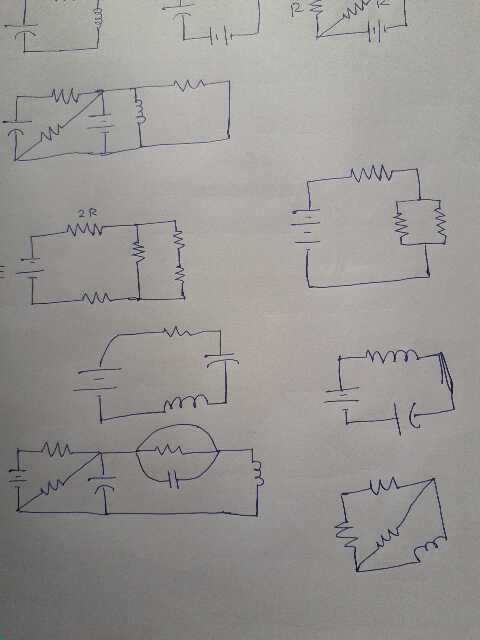 R
R
2R